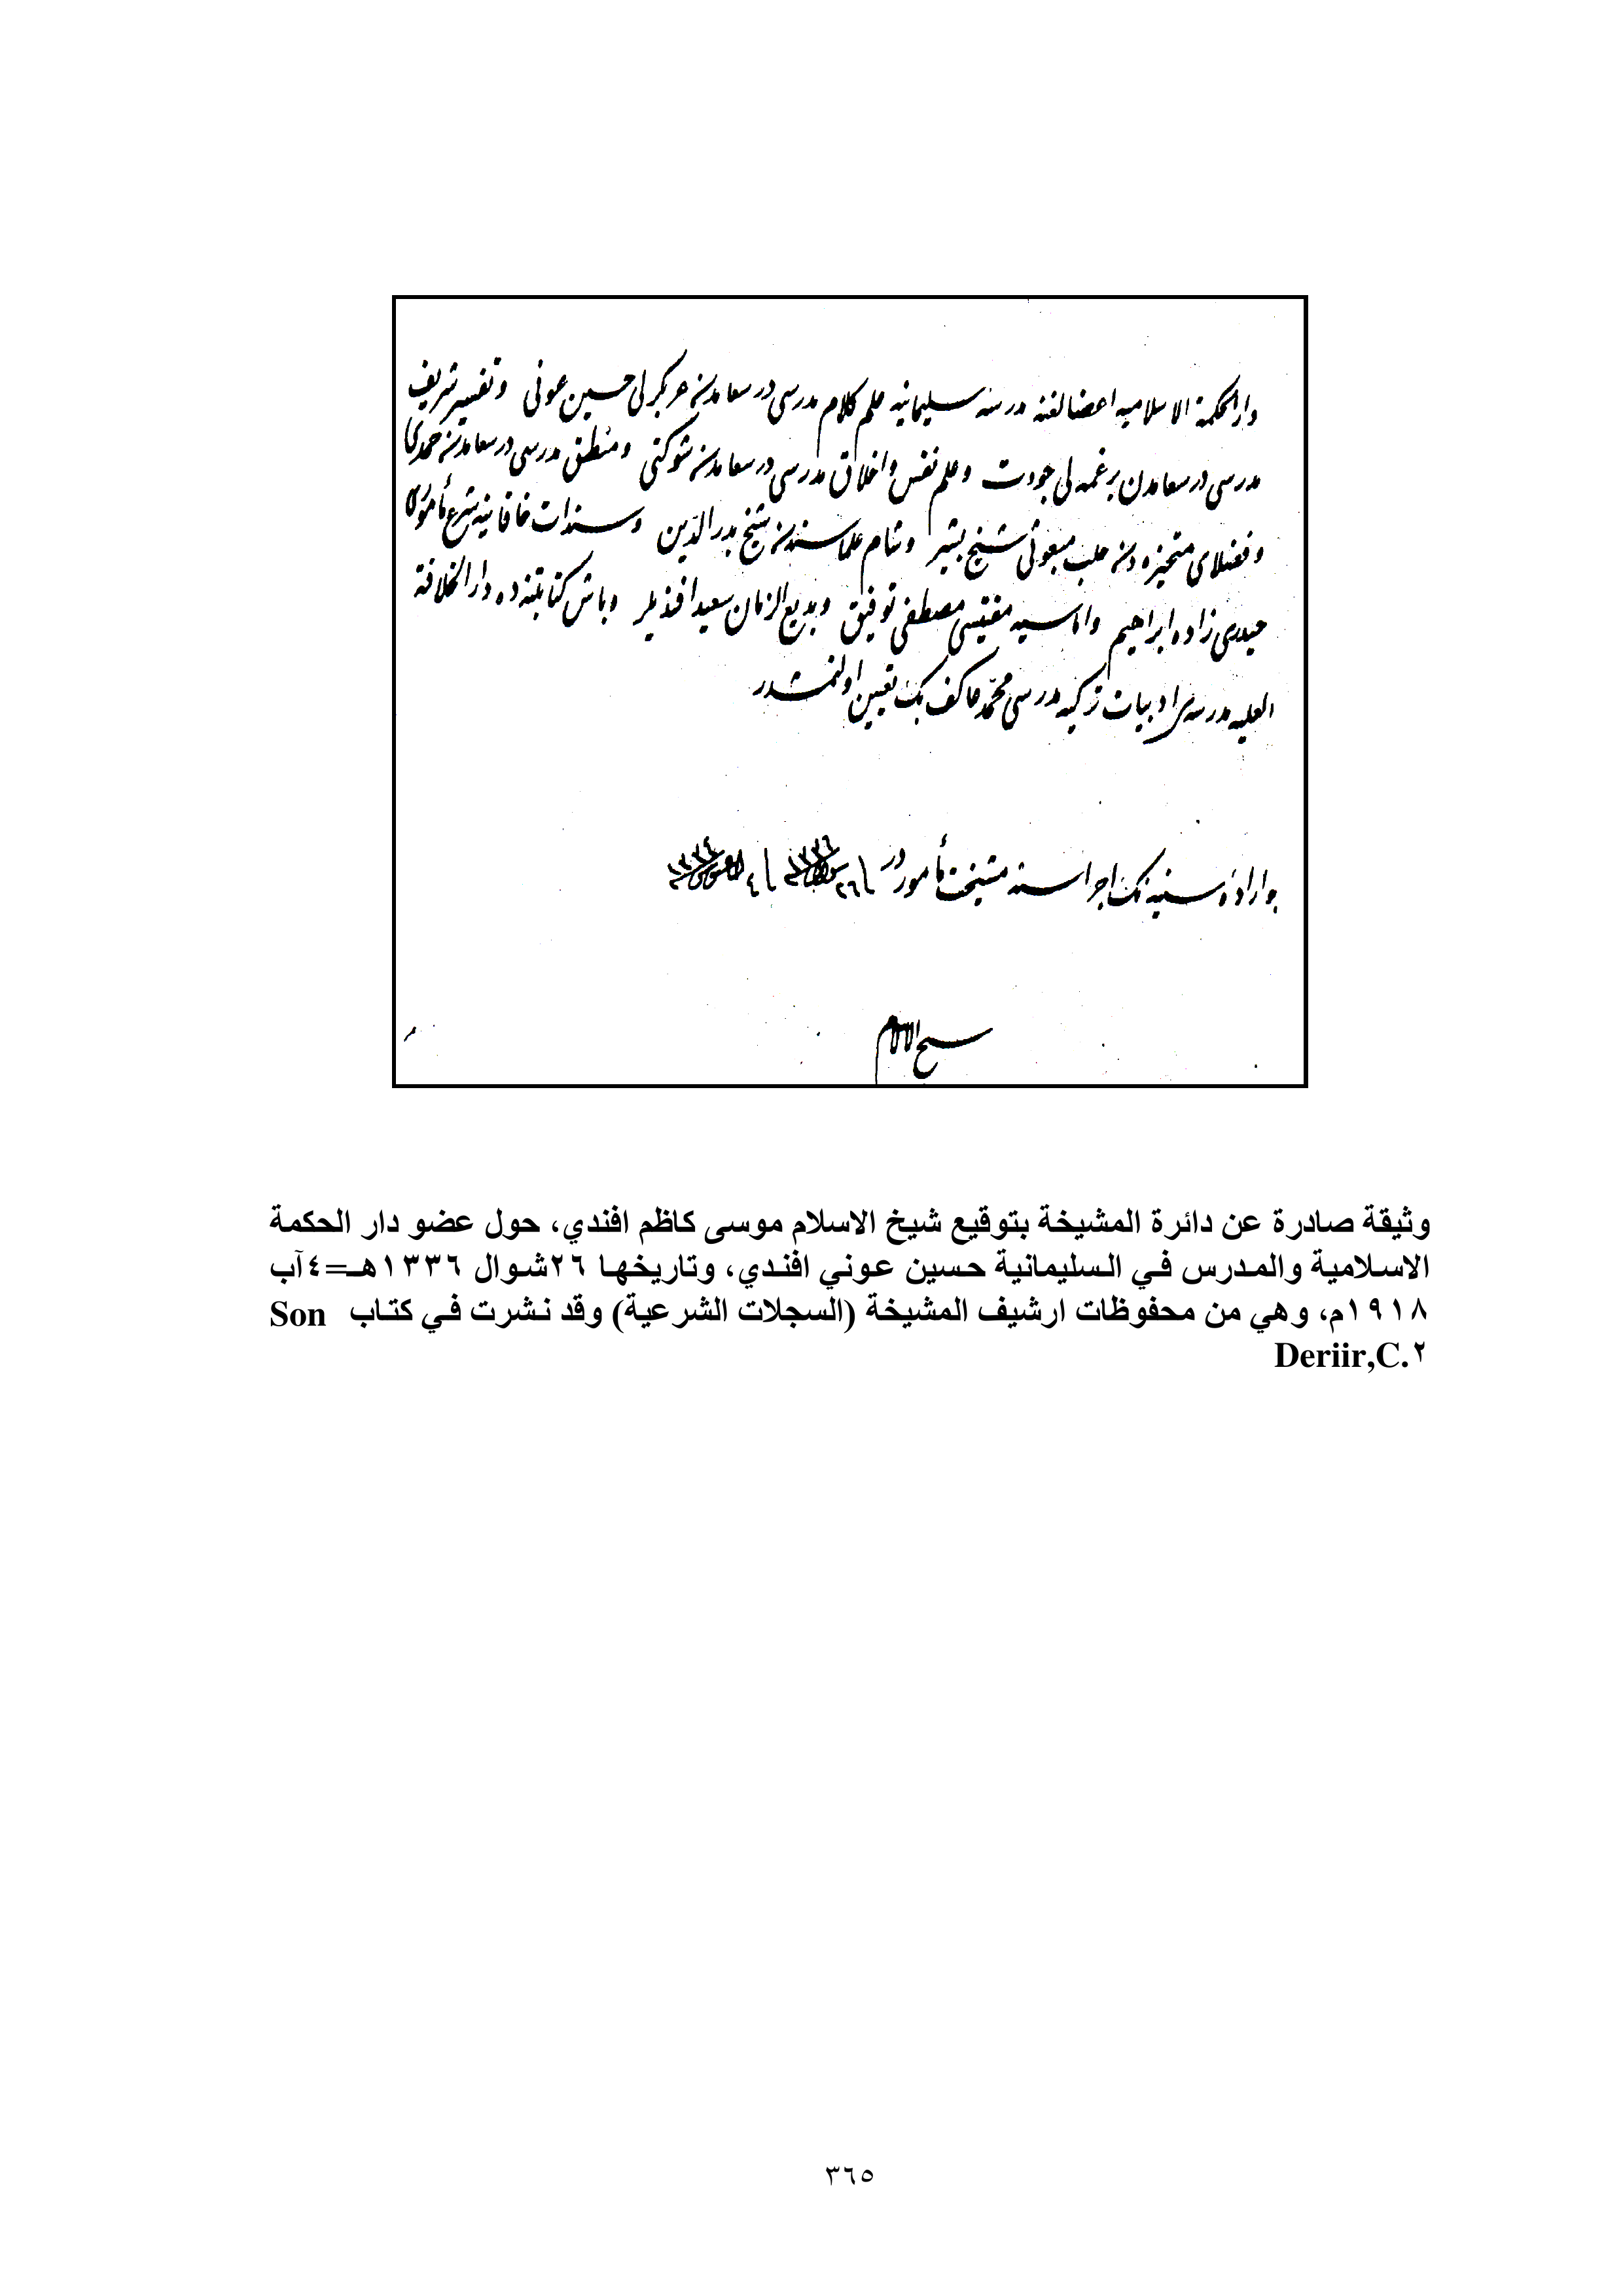 دار الحكمة الاسلاميه اعضالغنه مدرسهٔ سليمانيه علم كلام مدرسى درسعامدن عربكرلى حسين عونى و تفسير شريف
مدرسى درسعامدن برغمه لى جودت و علم نفس و اخلاق مدرسى درسعامدن شوكتى و منطق مدرسى درسعامدن حمدى
و فضلاى متحيزه دن حلب مبعوثى شيخ بشير و شام علماسندن شيخ بدر الدّين و سندات خاقانيه شرع مأمورى
حيدرى زاده ابراهيم و اماسيه مفتيسى مصطفى توفيق و بديع الزمان سعيد افنديلر و باش كتابتنه ده دار الخلافة
العليه مدرسه سى ادبيات تركيه مدرسى محمّد عاكف بك تعيين اولنمشدر
بو ارادهٔ سنيه نك اجراسنه مشيخت مأموردر ٢٦ شوال ١٣٣٦ ٤ اغستوس ١٣٣٤
شيخ الاسلام
وثيقة صادرة عن دائرة المشيخة بتوقيع شيخ الاسلام موسى كاظم افندي، حول عضو دار الحكمة
الاسلامية والمدرس في السليمانية حسين عوني افندي، وتاريخها ٢٦شوال ١٣٣٦هـ=٤آب
١٩١٨م، وهي من محفوظات ارشيف المشيخة (السجلات الشرعية) وقد نشرت في كتاب Son
Deriir,C.٢
٣٦٥